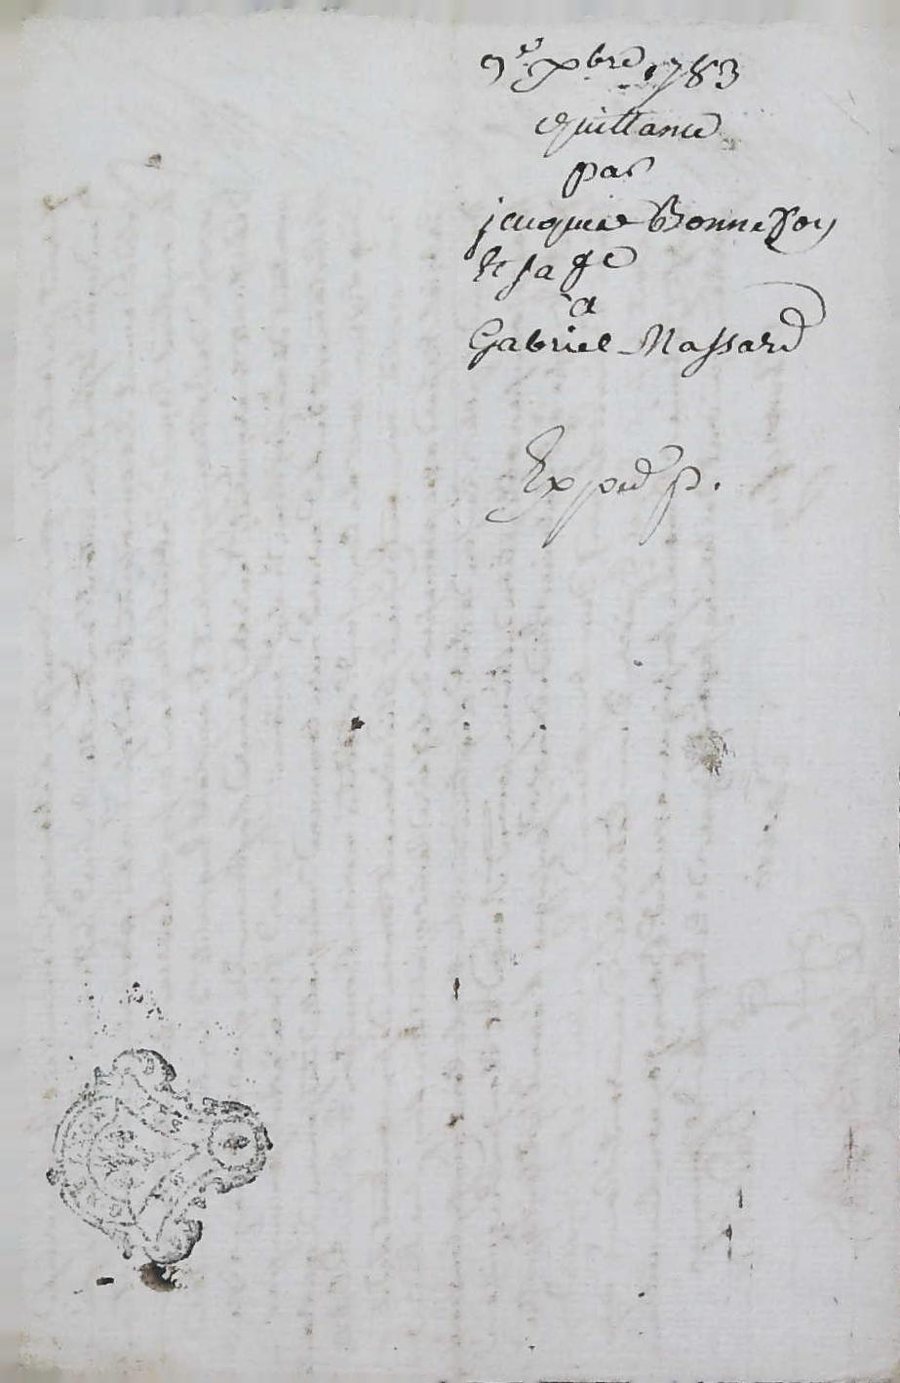 9e xbre 1783
quittance
par
jacques Bonnefoy
et sa fe
a
Gabriel Massard
Exped p.